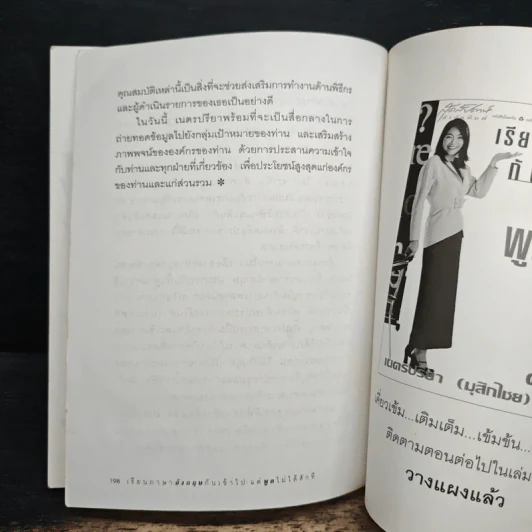 คุณสมบัติเหล่านี้เป็นสิ่งที่จะช่วยส่งเสริมการทำงานด้านพิธีกร
และผู้ดำเนินรายการของเธอเป็นอย่างดี
ในวันนี้ เนตรปรียาพร้อมที่จะเป็นสื่อกลางในการ
ถ่ายทอดข้อมูลไปยังกลุ่มเป้าหมายของท่าน และเสริมสร้าง
ภาพพจน์ขององค์กรของท่าน ด้วยการประสานความเข้าใจ
กับท่านและทุกฝ่ายที่เกี่ยวข้อง เพื่อประโยชน์สูงสุดแก่องค์กร
ของท่านและแก่ส่วนรวม ✻
198 เรียนภาษาอังกฤษกันเข้าไป แต่พูดไม่ได้สักที
เรีย
กั
พู
เนตรปรียา (มุสิกไชย)
เคี่ยวเข้ม...เติมเต็ม...เข้มข้น...
ติดตามตอนต่อไปในเล่ม
วางแผงแล้ว